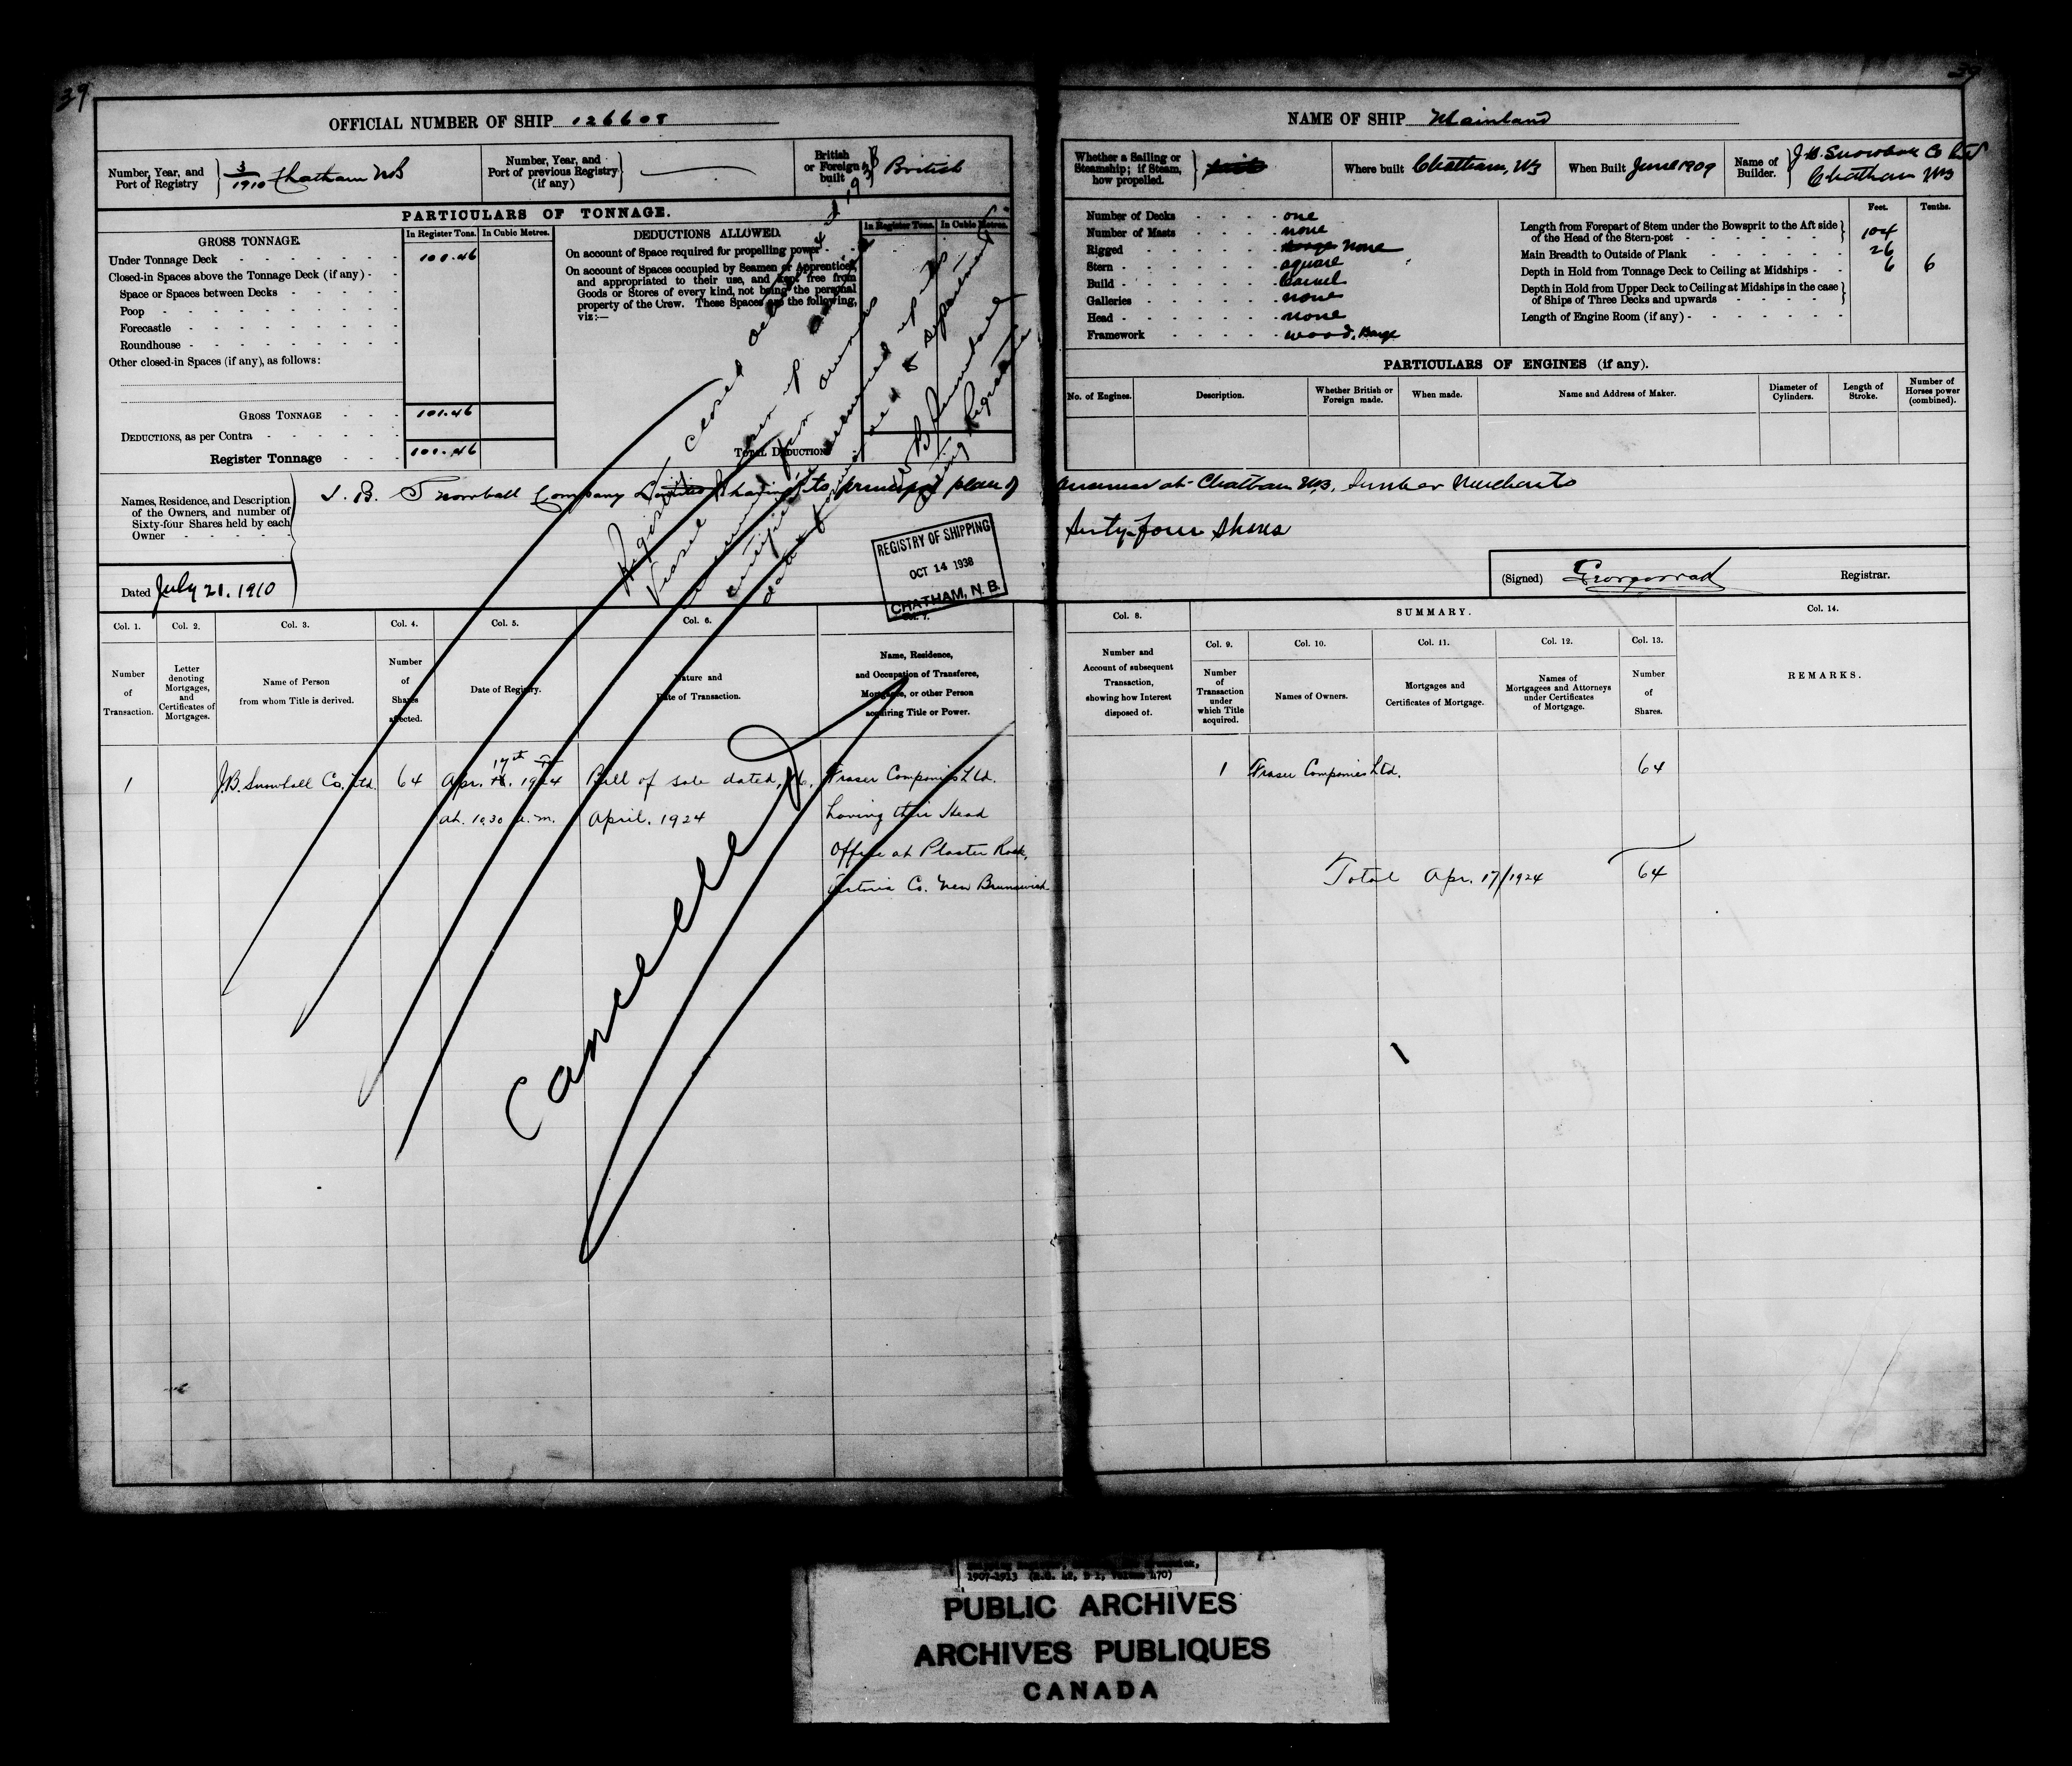 39
OFFICIAL NUMBER OF SHIP 126608
Number, Year, and
Port of Registry
3/1910 Chatham NB
Number, Year, and
Port of previous Registry
(if any)
British
or Foreign
built
British
PARTICULARS OF TONNAGE.
GROSS TONNAGE.
In Register Tons.
In Cubic Metres.
Under Tonnage Deck 100.46
Closed-in Spaces above the Tonnage Deck (if any)
Space or Spaces between Decks
Poop
Forecastle
Roundhouse
Other closed-in Spaces (if any), as follows:
GROSS TONNAGE 101.46
DEDUCTIONS, as per Contra
Register Tonnage 101.46
DEDUCTIONS ALLOWED.
In Register Tons.
In Cubic Metres.
On account of Space required for propelling power
On account of Spaces occupied by Seamen or Apprentices,
and appropriated to their use, and kept free from
Goods or Stores of every kind, not being the personal
property of the Crew. These Spaces are the following,
viz:—
TOTAL DEDUCTIONS
Names, Residence, and Description
of the Owners, and number of
Sixty-four Shares held by each
Owner
J. B. Snowball Company Limited having its principal place of
Dated July 21. 1910
Register closed
Vessel
Registrar
REGISTRY OF SHIPPING
OCT 14 1938
CHATHAM, N. B.
Col. 1.
Col. 2.
Col. 3.
Col. 4.
Col. 5.
Col. 6.
Col. 7.
Number
of
Transaction.
Letter
denoting
Mortgages,
and
Certificates of
Mortgages.
Name of Person
from whom Title is derived.
Number
of
Shares
affected.
Date of Registry.
Nature and
Date of Transaction.
Name, Residence,
and Occupation of Transferee,
Mortgagee, or other Person
acquiring Title or Power.
1 J.B. Snowball Co. Ltd. 64 Apr. 17th 1924 Bill of sale dated, 16, Fraser Companies Ltd.
at. 10.30 a.m. April. 1924 having their Head
Office at Plaster Rock,
Victoria Co. New Brunswick
Cancelled
NAME OF SHIP Mainland
Whether a Sailing or
Steamship; if Steam,
how propelled.
Where built Chatham, NB
When Built June 1909
Name of
Builder.
J.B. Snowball Co Ltd
Chatham NB
Number of Decks one
Number of Masts none
Rigged none
Stern square
Build Carvel
Galleries none
Head none
Framework wood, Barge
Feet.
Tenths.
Length from Forepart of Stem under the Bowsprit to the Aft side
of the Head of the Stern-post 104
Main Breadth to Outside of Plank 26
Depth in Hold from Tonnage Deck to Ceiling at Midships 6 6
Depth in Hold from Upper Deck to Ceiling at Midships in the case
of Ships of Three Decks and upwards
Length of Engine Room (if any)
PARTICULARS OF ENGINES (if any).
No. of Engines.
Description.
Whether British or
Foreign made.
When made.
Name and Address of Maker.
Diameter of
Cylinders.
Length of
Stroke.
Number of
Horses power
(combined).
business at Chatham NB, Lumber Merchants
Sixty-four Shares
(Signed)
Registrar.
Col. 8.
SUMMARY.
Col. 14.
Number and
Account of subsequent
Transaction,
showing how Interest
disposed of.
Col. 9.
Col. 10.
Col. 11.
Col. 12.
Col. 13.
Number
of
Transaction
under
which Title
acquired.
Names of Owners.
Mortgages and
Certificates of Mortgage.
Names of
Mortgagees and Attorneys
under Certificates
of Mortgage.
Number
of
Shares.
REMARKS.
1 Fraser Companies Ltd. 64
Total Apr. 17/1924 64
1907-1913
PUBLIC ARCHIVES
ARCHIVES PUBLIQUES
CANADA